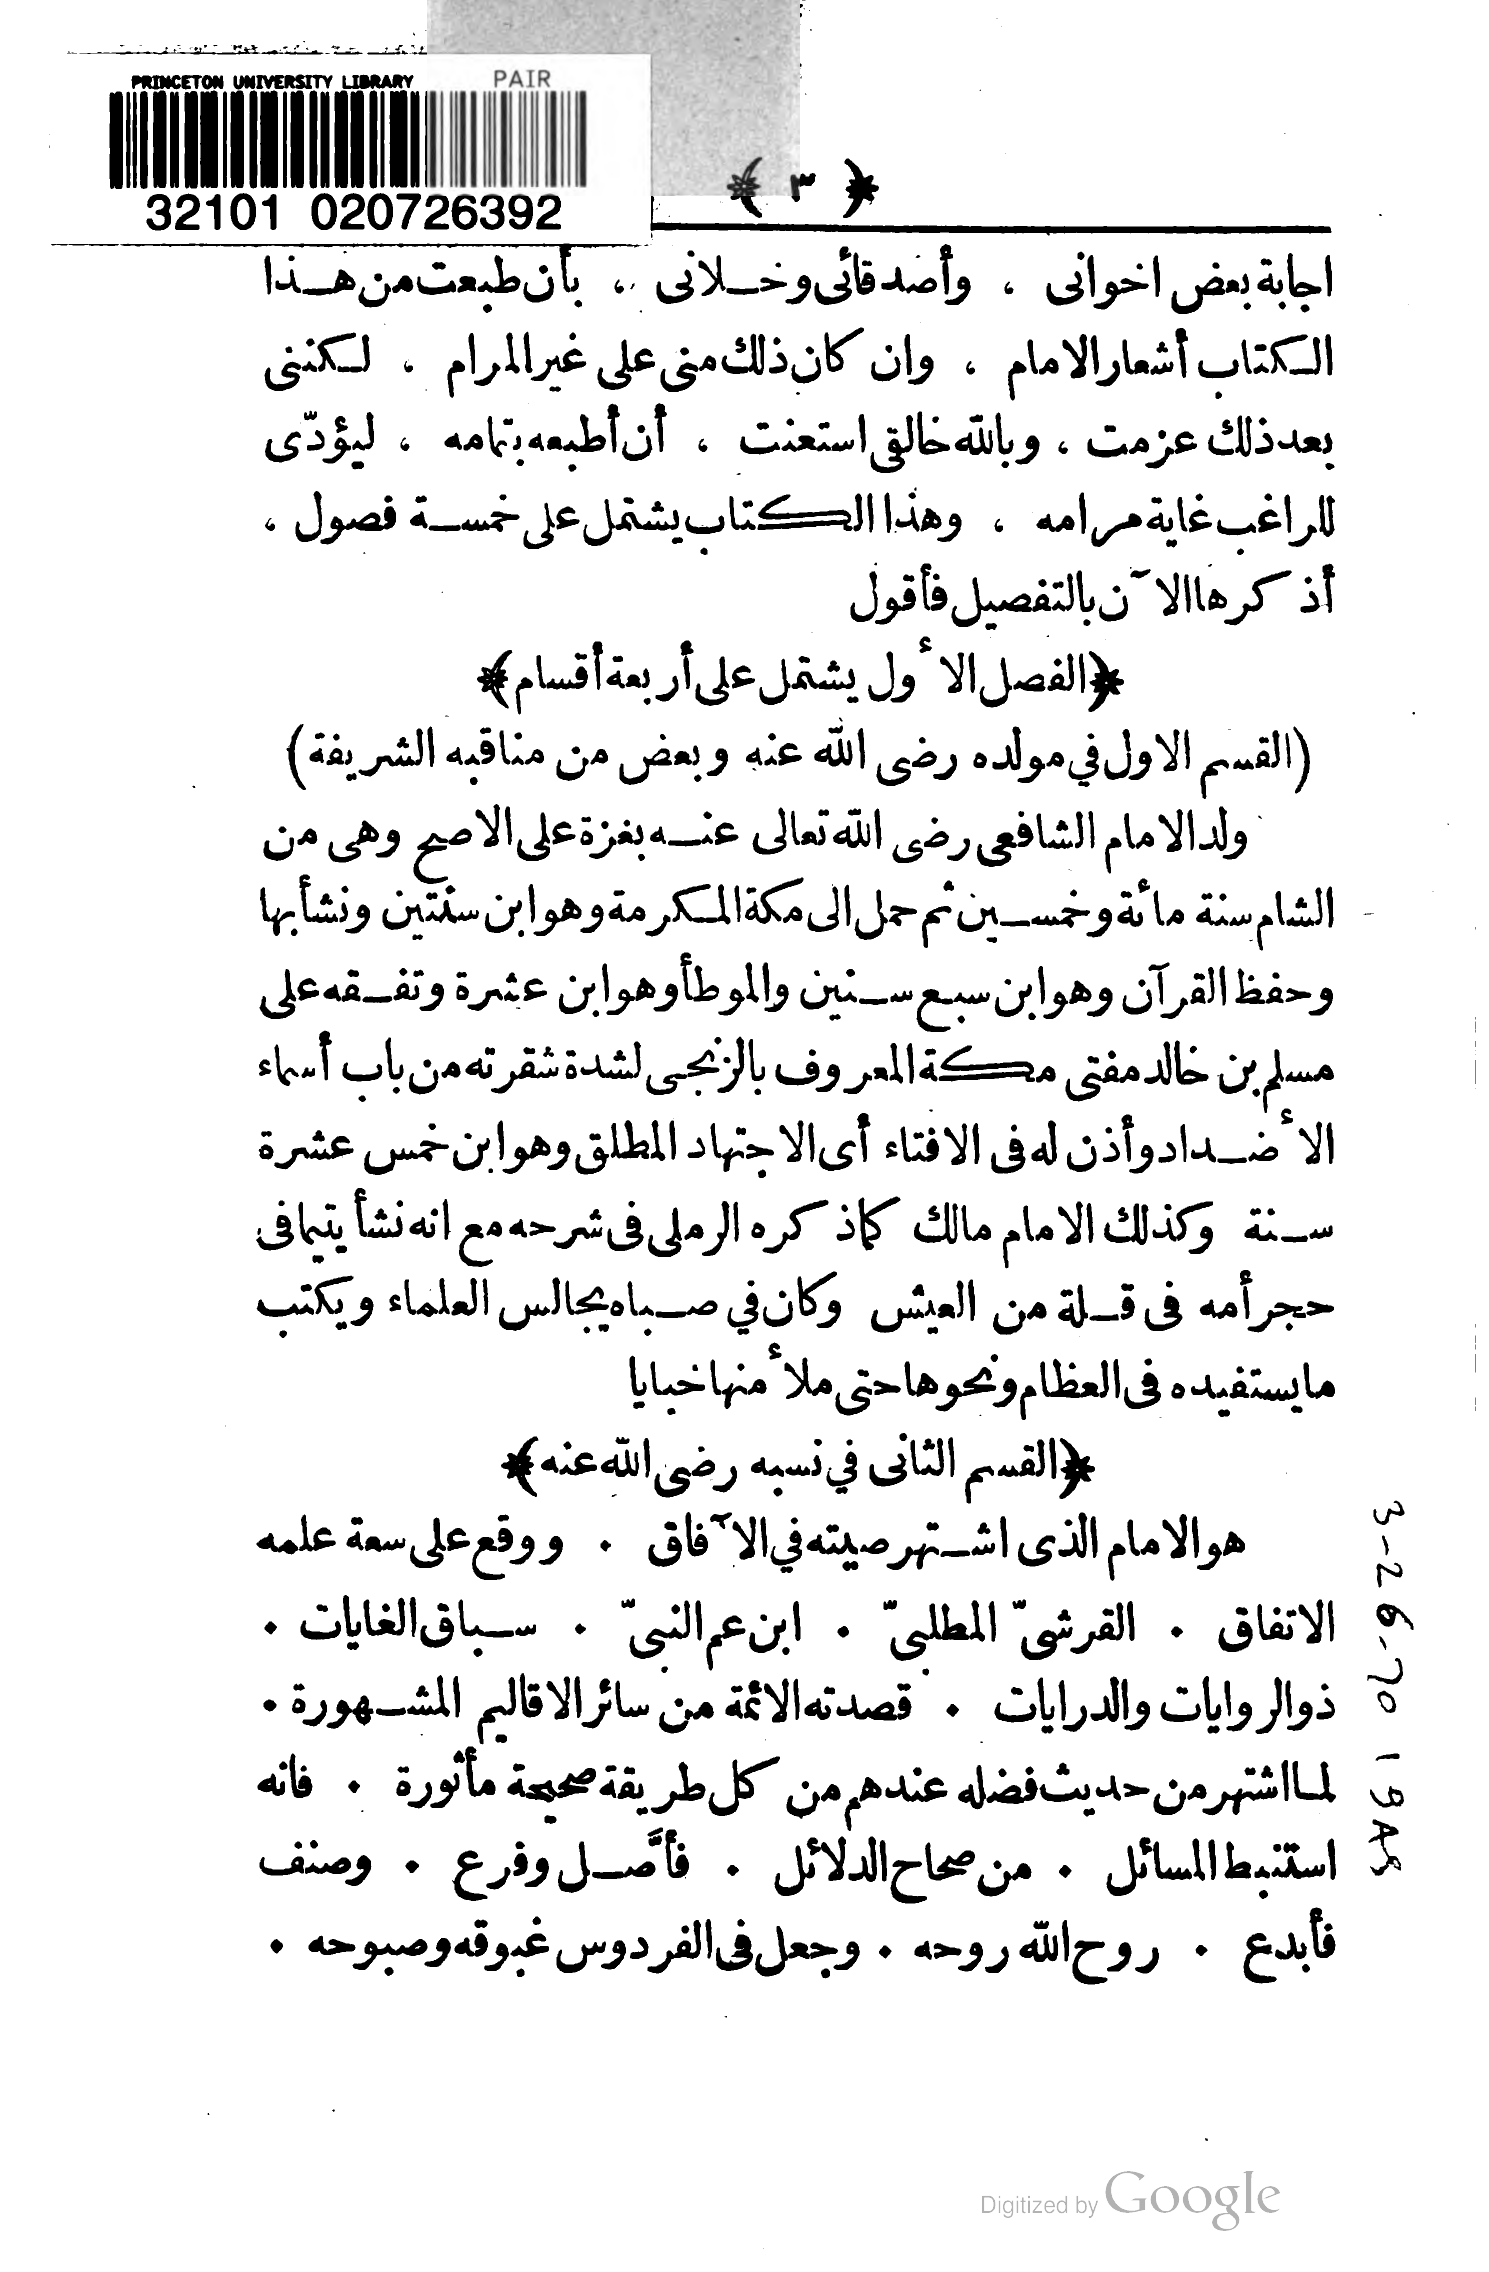 PRINCETON UNIVERSITY LIBRARY PAIR
32101 020726392
﴿ ٣ ﴾
اجابة بعض اخوانى ، وأصدقائى وخلانى ، بأن طبعت من هذا
الكتاب أشعار الامام ، وان كان ذلك منى على غير المرام ، لكننى
بعد ذلك عزمت ، وبالله خالقى استعنت ، أن أطبعه بتمامه ، ليؤدّى
للراغب غاية مرامه ، وهذا الكتاب يشتمل على خمسة فصول ،
أذكرها الآن بالتفصيل فأقول
﴿الفصل الأول يشتمل على أربعة أقسام﴾
(القسم الاول في مولده رضى الله عنه وبعض من مناقبه الشريفة)
ولد الامام الشافعى رضى الله تعالى عنه بغزة على الاصح وهى من
الشام سنة مائة وخمسين ثم حمل الى مكة المكرمة وهو ابن سنتين ونشأ بها
وحفظ القرآن وهو ابن سبع سنين والموطأ وهو ابن عشرة وتفقه على
مسلم بن خالد مفتى مكة المعروف بالزنجى لشدة شقرته من باب أسماء
الأضداد وأذن له فى الافتاء أى الاجتهاد المطلق وهو ابن خمس عشرة
سنة وكذلك الامام مالك كماذكره الرملى فى شرحه مع انه نشأ يتيما فى
حجر أمه فى قلة من العيش وكان في صباه يجالس العلماء ويكتب
ما يستفيده فى العظام ونحوها حتى ملأ منها خبايا
﴿القسم الثانى في نسبه رضى الله عنه﴾
هو الامام الذى اشتهر صيته في الآفاق . ووقع على سعة علمه
الاتفاق . القرشىّ المطلبىّ . ابن عم النبىّ . سباق الغايات .
ذو الروايات والدرايات . قصدته الائمة من سائر الاقاليم المشهورة .
لما اشتهر من حديث فضله عندهم من كل طريقة صحيحة مأثورة . فانه
استنبط المسائل . من صحاح الدلائل . فأصَّل وفرع . وصنف
فأبدع . روح الله روحه . وجعل فى الفردوس غبوقه وصبوحه .
3-26-70
Digitized by Google